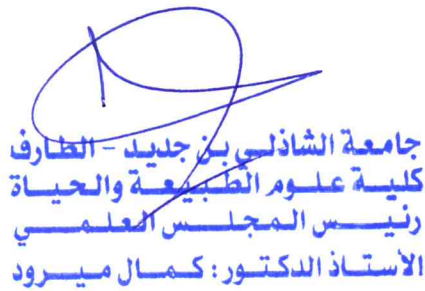 جامعة الشاذلي بن جديد - الطارف
كلية علوم الطبيعة والحياة
رئيس المجلس العلمي
الأستاذ الدكتور: كمال ميرود